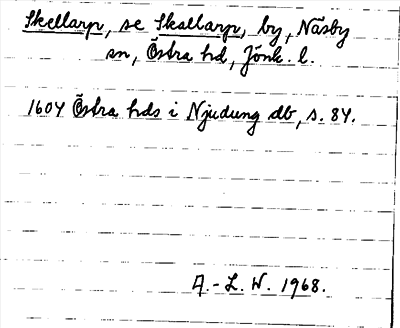 Skellarp, se Skallarp, by, Näsby
sn, Östra hd, Jönk. l.
1604 Östra hds i Njudung db, s. 84.
A.-L. W. 1968.